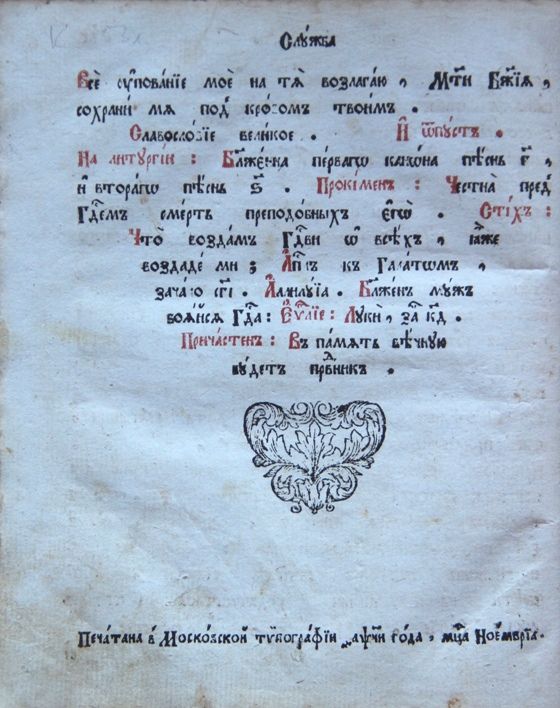 Слꙋ́жба
Всѐ ᲂу҆пова́нїе моѐ на тѧ̀ возлага́ю , Мт҃и Бж҃їѧ ,
сохрани́ мѧ под̾ кро́вомъ твои́мъ .
Славосло́вїе вели́кое . И҆ ѿпꙋ́стъ .
На литꙋргі́и : Бл҃же́нна пе́рвагѡ канѡ́на пѣ́снь г҃ ,
и҆ втора́гѡ пѣ́снь ѕ҃ . Проки́менъ : Честна̀ пред̾
Гдⷭ҇емъ сме́рть преподо́бныхъ є҆гѡ̀ . Сті́хъ :
Что̀ возда́мъ Гдⷭ҇ви ѡ҆ всѣ́хъ , ꙗ҆̀же
воздаде́ ми ; А҆пⷭ҇лъ къ Гала́тѡмъ ,
зача́ло сг҃і . А҆ллилꙋ́їа . Бл҃же́нъ мꙋ́жъ
боѧ́йсѧ Гдⷭ҇а : Є҆ѵⷢ҇лїе : Лꙋкѝ , за҄ кд҃ .
Прича́стенъ : Въ па́мѧть вѣ́чнꙋю
бꙋ́детъ првⷣникъ .
Печа́тана в̾ Моско́вской тѷпогра́фїи ҂аѱч҃и го́да , мцⷭ҇а Ное́мврїа .